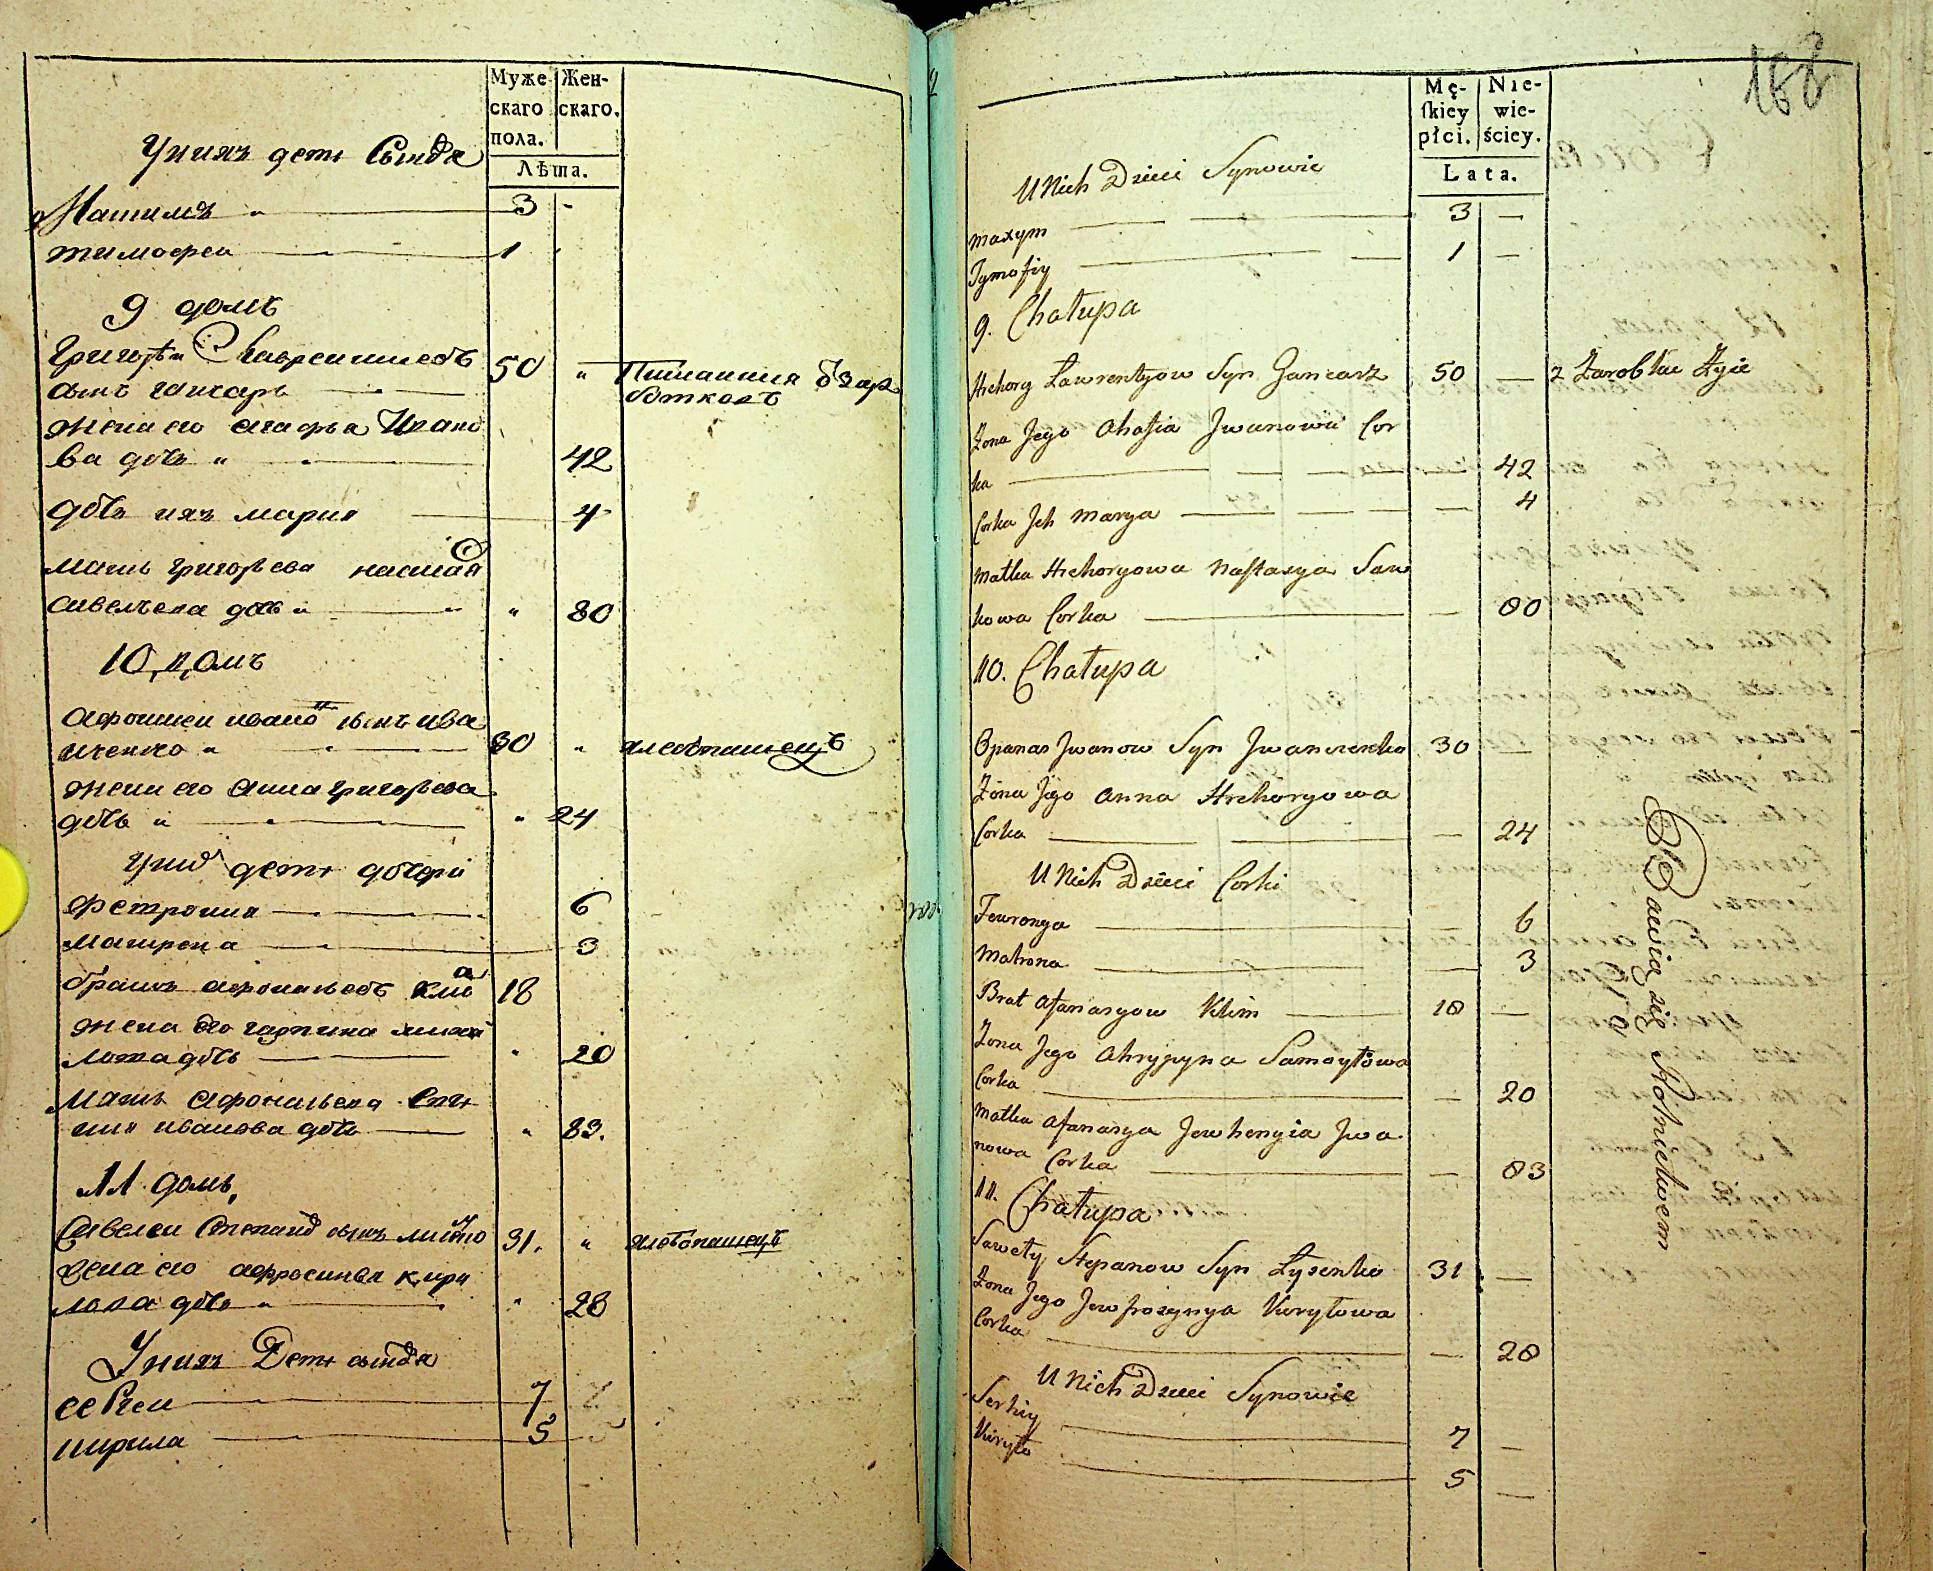 Муже
скаго
пола.
Жен-
скаго.
Лѣта.
У нихъ дети
Максимъ 3
тимофеи 1
9 домъ
Григореи Лаврентиевъ
сынъ ганчаръ 50
Питания
жена его агафья Ивано
ва дочь 42
дочь ихъ мария 4
мать григорьева настася
савельева дочь 80
10, домъ
афонасеи ивановъ сынъ ива
ненко 30 хлебопашецъ
жена его анна григорьева
дочь 24
дети дочери
Фетрония 6
матрена 3
братъ афонасьевъ клим 18
жена его
дочь 20
мать афонасьева
ения иванова дочь 83.
11 домъ,
Савелеи Степановъ сынъ 31. хлебопашецъ
жена его афросинья кири
лова дочь 28
У нихъ Дети
сергеи 7
кирила 5
158
Mę-
ſkiey
płci.
Nie-
wie-
ściey.
Lata.
U Nich Dzieci Synowie
Maxym 3 —
Tymofiy 1 —
9. Chałupa
Hrehory Lawrentyow Syn Gancarz 50 — z Zarobku Zyie
Zona Jego Ahafia Jwanowa Cor
ka 42
Corka Jch Marya — 4
Matka Hrehoryowa Nastasya Saw
kowa Corka — 80
10. Chałupa
Opanas Jwanow Syn Jwanienko 30 —
Zona Jego Anna Hrehoryowa
Corka — 24
U Nich Dzieci Corki
Fewronya — 6
Matrona — 3
Brat Afanasyow Klim 18 —
Zona Jego Ahrypyna Samoyłowa
Corka — 20
Matka Afanasya Jewhenyia Jwa
nowa Corka — 83
11. Chałupa
Sawety Stepanow Syn Łysenko 31 —
Zona Jego Jewfrozynya Kiryłowa
Corka — 28
U Nich Dzieci Synowie
Serhiy 7 —
Kiryło 5 —
Bawią się Rolnictwem